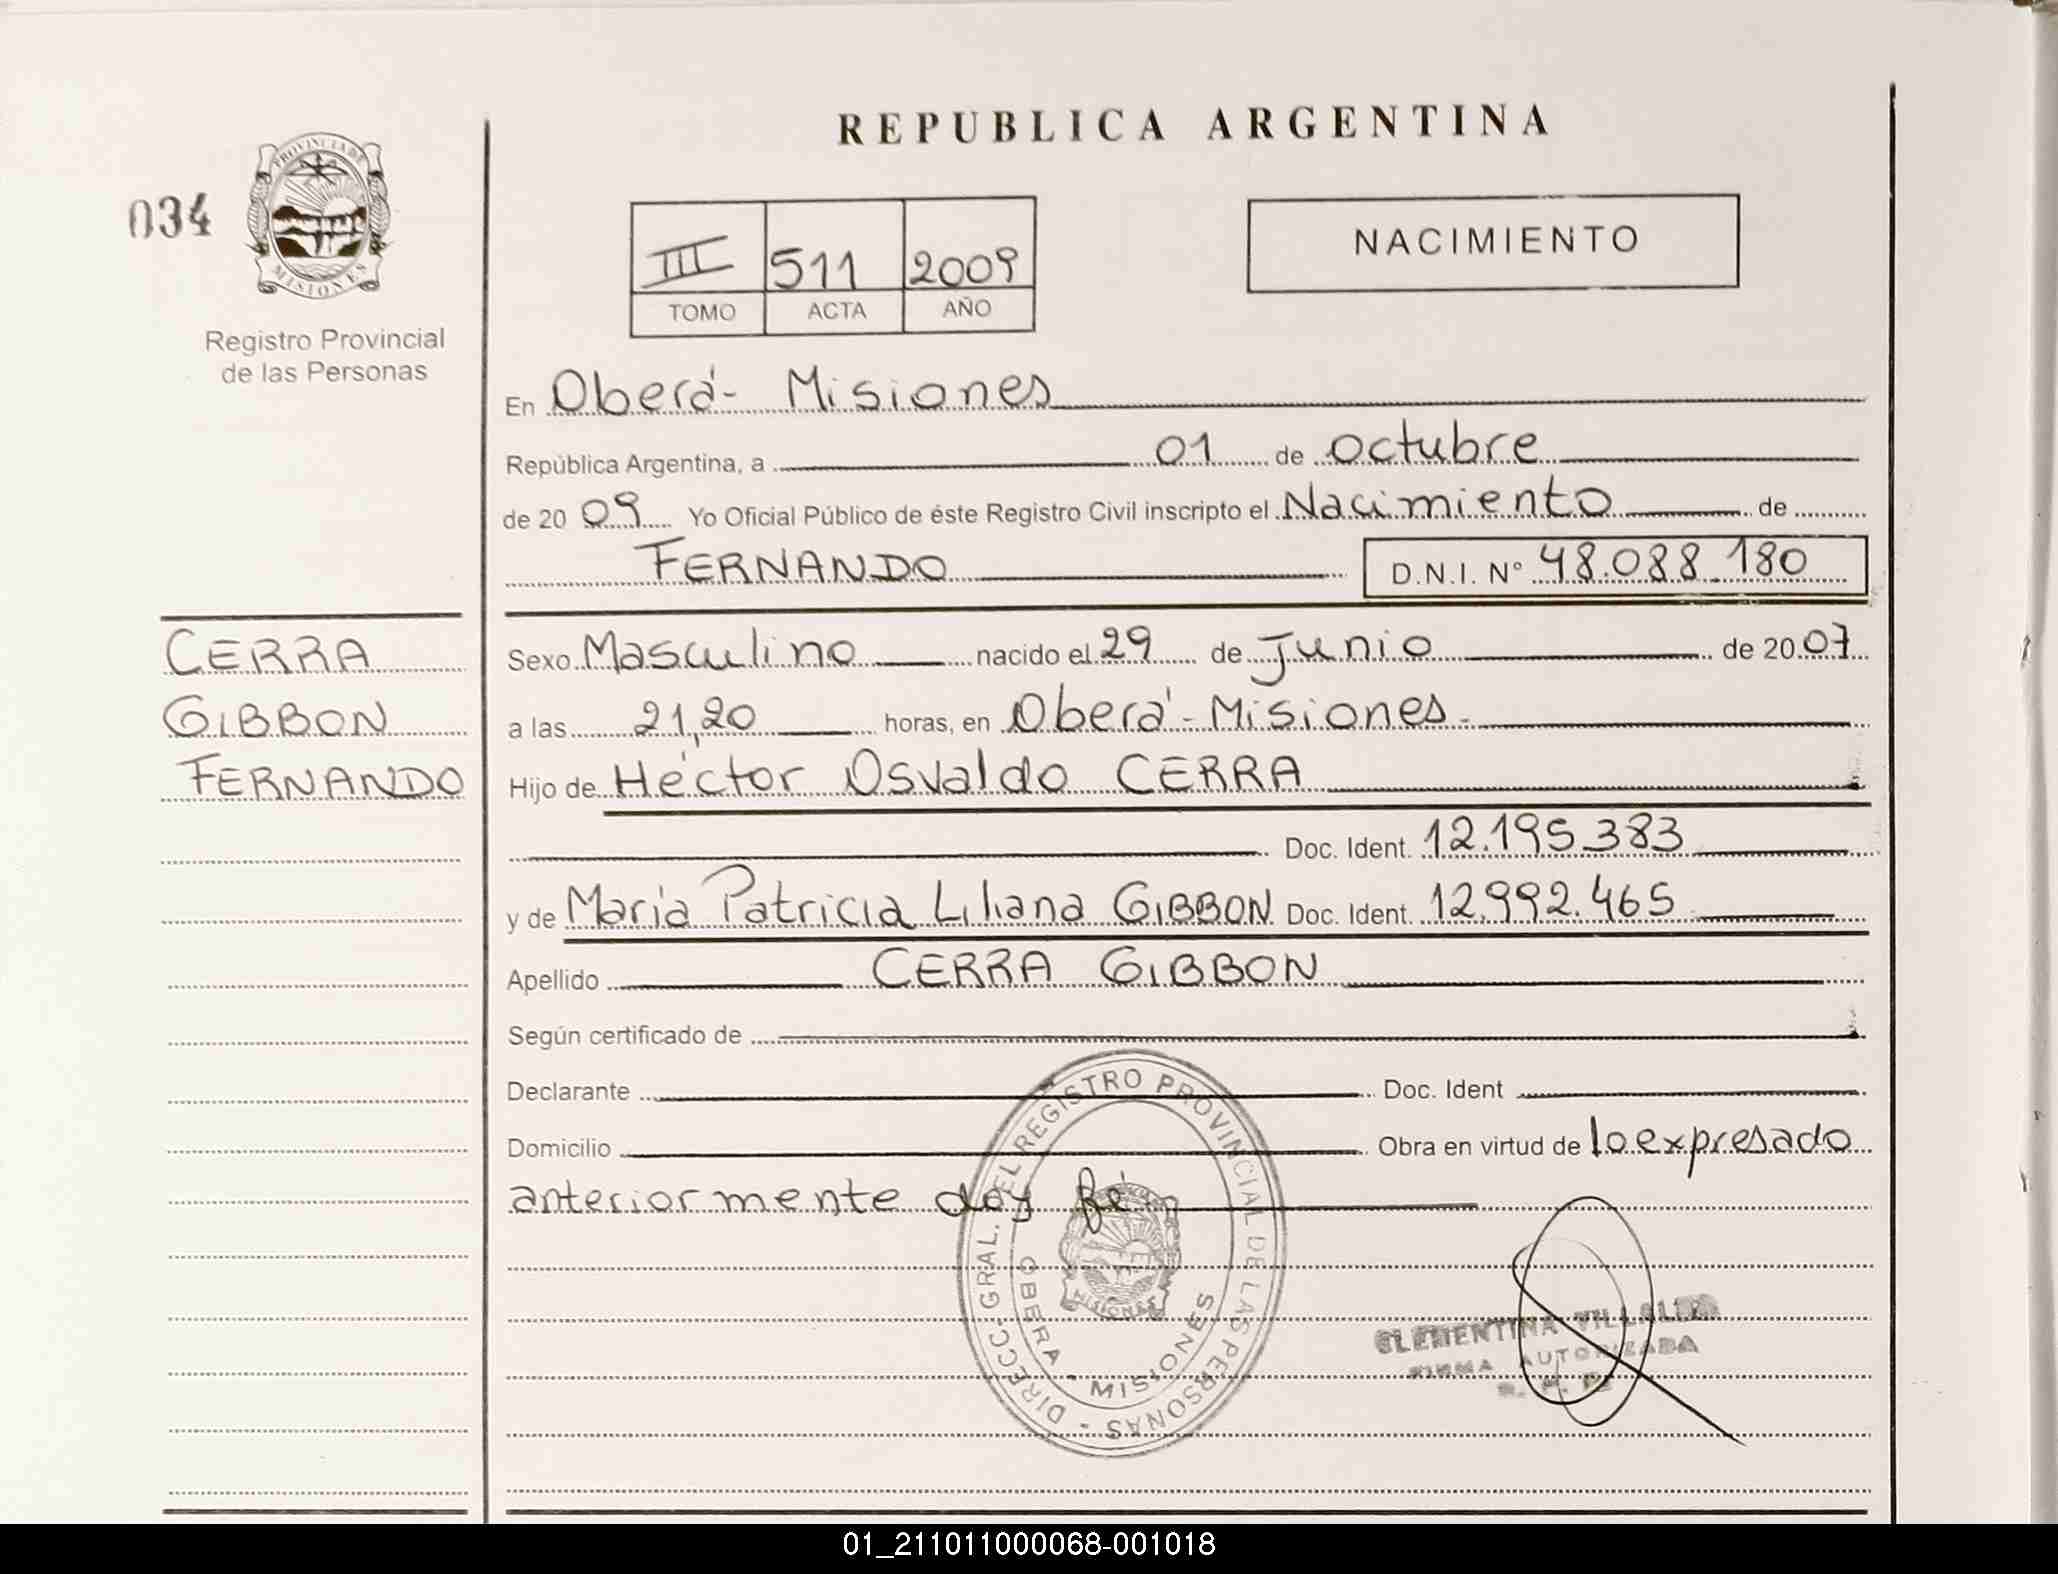 REPUBLICA ARGENTINA
034
PROVINCIA DE
MISIONES
Registro Provincial
de las Personas
III 511 2009
TOMO ACTA AÑO
NACIMIENTO
En Oberá- Misiones
República Argentina, a 01 de octubre
de 20 09 Yo Oficial Público de éste Registro Civil inscripto el Nacimiento de
FERNANDO D.N.I. Nº 48.088.180
CERRA
GIBBON
FERNANDO
Sexo Masculino nacido el 29 de Junio de 20 07
a las 21,20 horas, en Oberá - Misiones.
Hijo de Héctor Osvaldo CERRA
Doc. Ident. 12.195.383
y de María Patricia Liliana GIBBON Doc. Ident. 12.992.465
Apellido CERRA GIBBON
Según certificado de
Declarante Doc. Ident
Domicilio Obra en virtud de lo expresado
anteriormente doy fé
DIRECC. GRAL. DEL REGISTRO PROVINCIAL DE LAS PERSONAS -
OBERA - MISIONES
MISIONES
CLEMENTINA
FIRMA AUTORIZADA
01_211011000068-001018